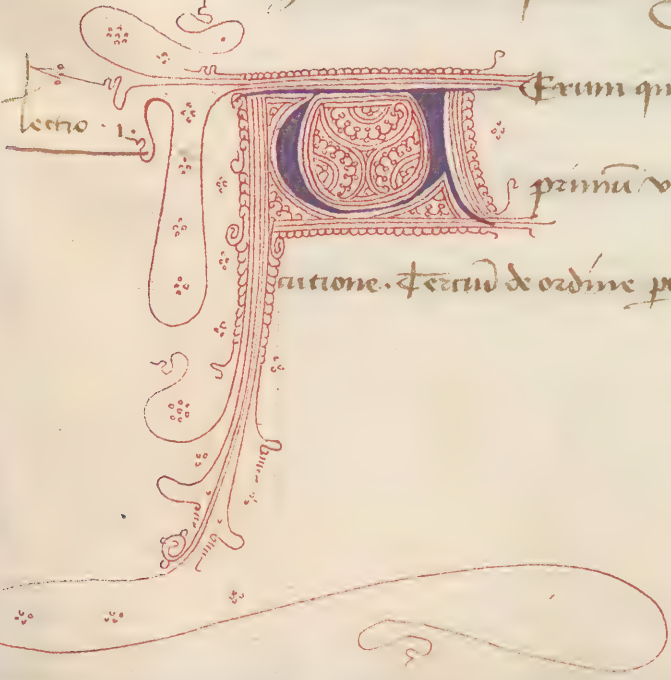 lectio · 1.
Uerum qu
primū v
cutione. Terciū de ordine p